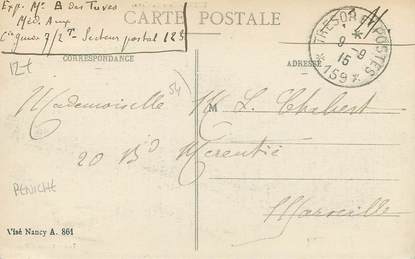 Exp. Mr B des Tuves
CARTE POSTALE
Méd. Aux
Cie 7/2T - Secteur postal 129
TRESOR ET POSTES
9-9
15
* 159 *
CORRESPONDANCE
ADRESSE
12+
54
Mademoiselle M L. Chabert
20 Bd Merentié
PENICHE
Marseille
Visé Nancy A. 861